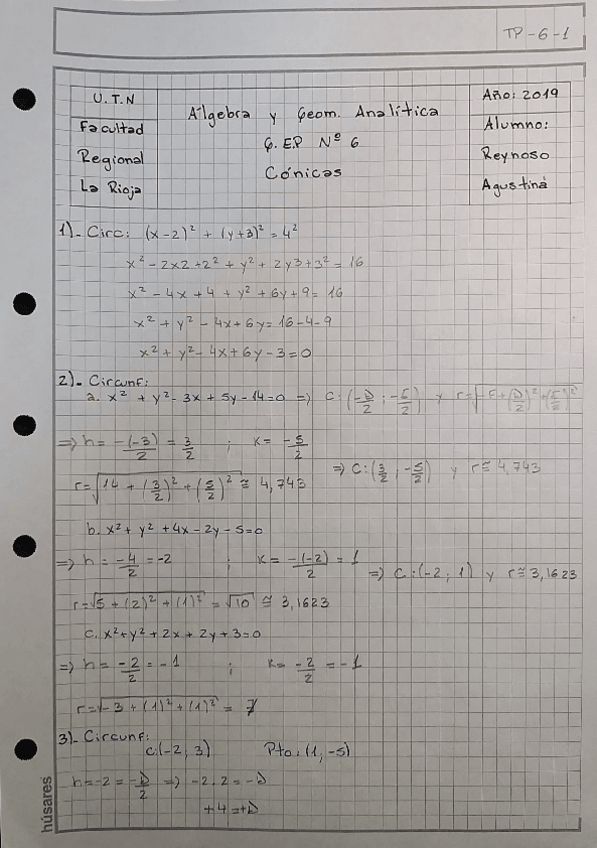 TP-6-1
U.T.N
Facultad
Regional
La Rioja
Álgebra y Geom. Analítica
G.E.P Nº 6
Cónicas
Año: 2019
Alumno:
Reynoso
Agustina
1)- Circ: (x-2)² + (y+3)² = 4²
x² - 2x2 + 2² + y² + 2y3 + 3² = 16
x² - 4x + 4 + y² + 6y + 9 = 16
x² + y² - 4x + 6y = 16 - 4 - 9
x² + y² - 4x + 6y - 3 = 0
2)- Circunf:
a. x² + y² - 3x + 5y - 14 = 0 => C: (-D/2 ; -E/2) y r = √(-F + (D/2)² + (E/2)²)
=> h = -(-3)/2 = 3/2 ; K = -5/2
r = √(14 + (3/2)² + (5/2)²) ≅ 4,743 => C: (3/2 ; -5/2) y r ≅ 4,743
b. x² + y² + 4x - 2y - 5 = 0
=> h = -4/2 = -2 ; K = -(-2)/2 = 1 => C: (-2 ; 1) y r ≅ 3,1623
r = √(5 + (2)² + (1)²) = √10 ≅ 3,1623
c. x² + y² + 2x + 2y + 3 = 0
=> h = -2/2 = -1 ; K = -2/2 = -1
r = √(-3 + (1)² + (1)²) =
3)- Circunf:
C:(-2; 3) Pto: (1, -5)
h = -2 = -D/2 => -2.2 = -D
+4 = +D
húsares